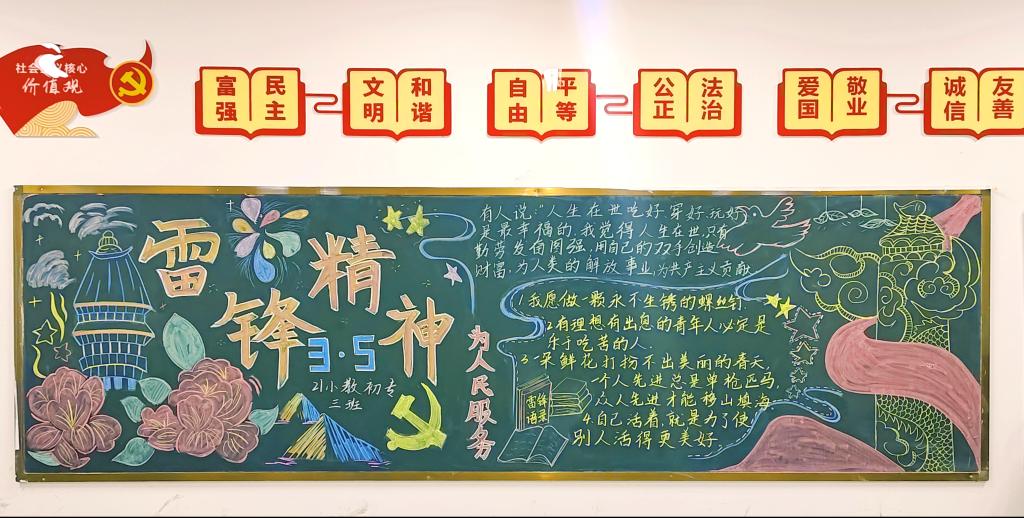 社会主义核心
价值观
富强 民主
文明 和谐
自由 平等
公正 法治
爱国 敬业
诚信 友善
雷锋精神
3·5
21小教初专
三班
为人民服务
有人说:"人生在世吃好穿好玩好
是最幸福的,我觉得人生在世,只有
勤劳发奋图强,用自己的双手创造
财富,为人类的解放事业,为共产主义贡献
1.我愿做一颗永不生锈的螺丝钉
2.有理想有出息的青年人必定是
乐于吃苦的人.
3.一朵鲜花打扮不出美丽的春天,
一个人先进总是单枪匹马,
众人先进才能移山填海
4.自己活着,就是为了使
别人活得更美好
雷锋
语录